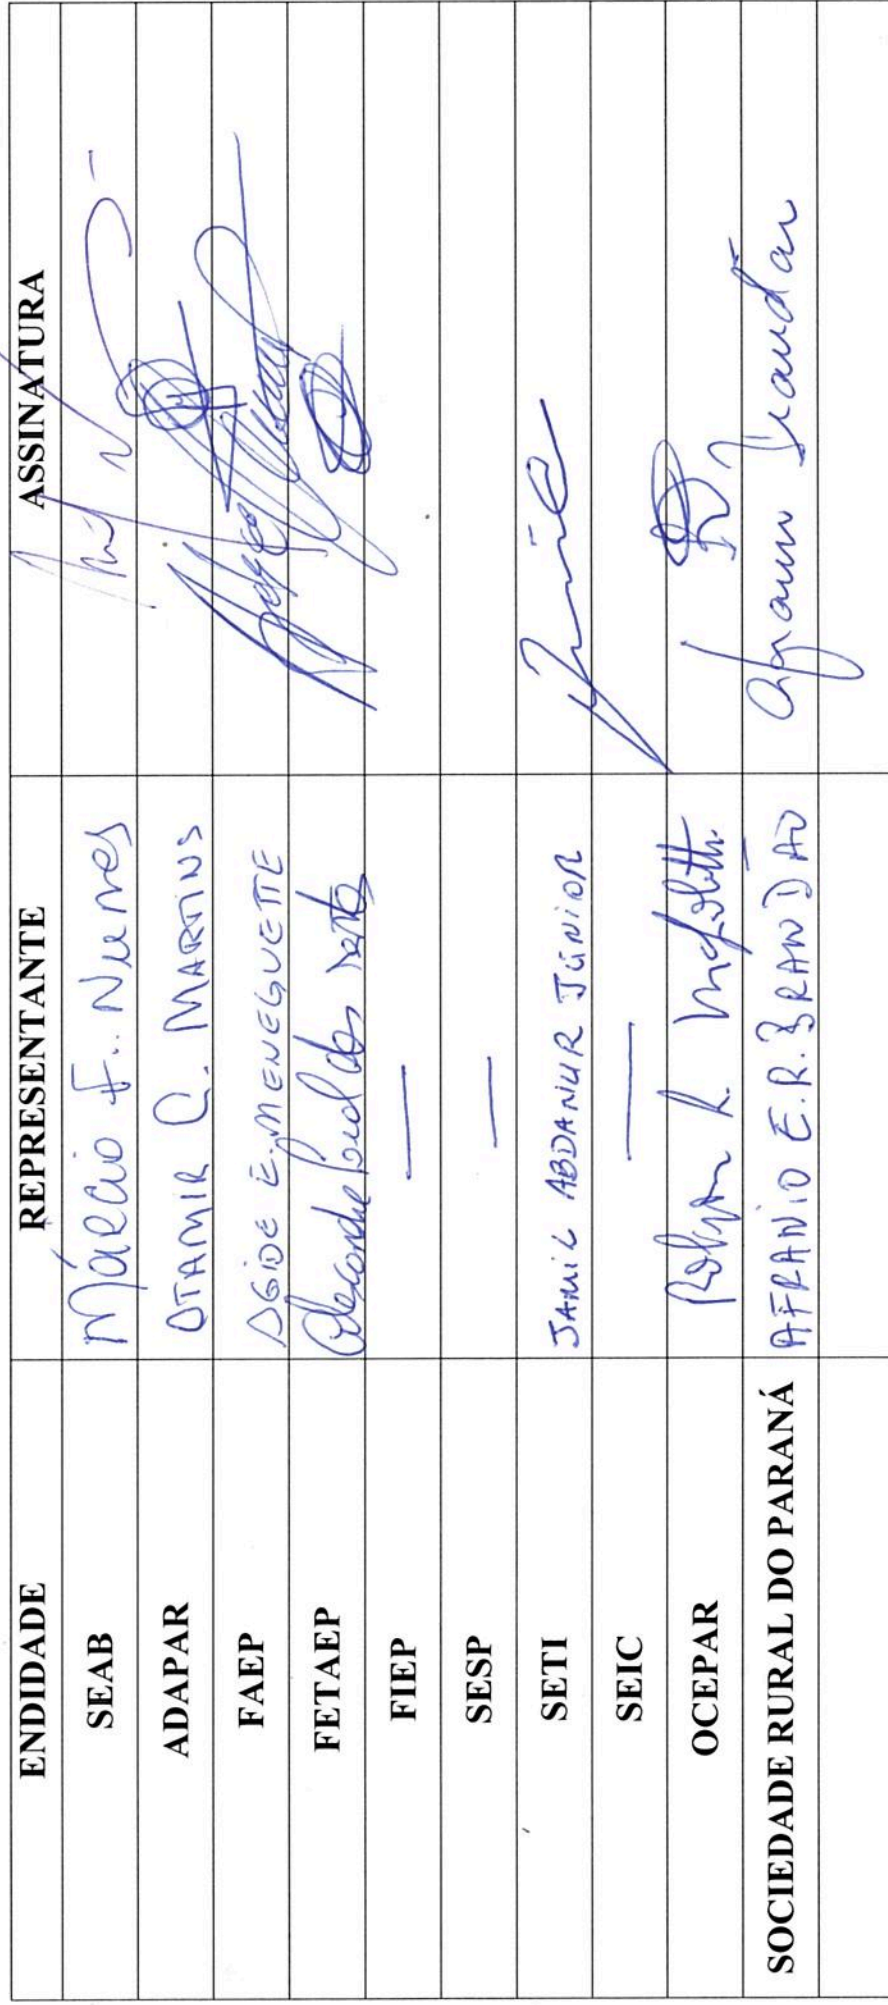 ENDIDADE REPRESENTANTE ASSINATURA
SEAB Márcio F. Nunes
ADAPAR OTAMIR C. MARTINS
FAEP ÁGIDE E. MENEGUETTE
FETAEP Alexandre Leal dos Santos
FIEP —
SESP —
SETI JAMIL ABDANUR JÚNIOR Jamil
SEIC —
OCEPAR Robson R.
SOCIEDADE RURAL DO PARANÁ AFRANIO E.R. BRANDÃO Afranio Brandão